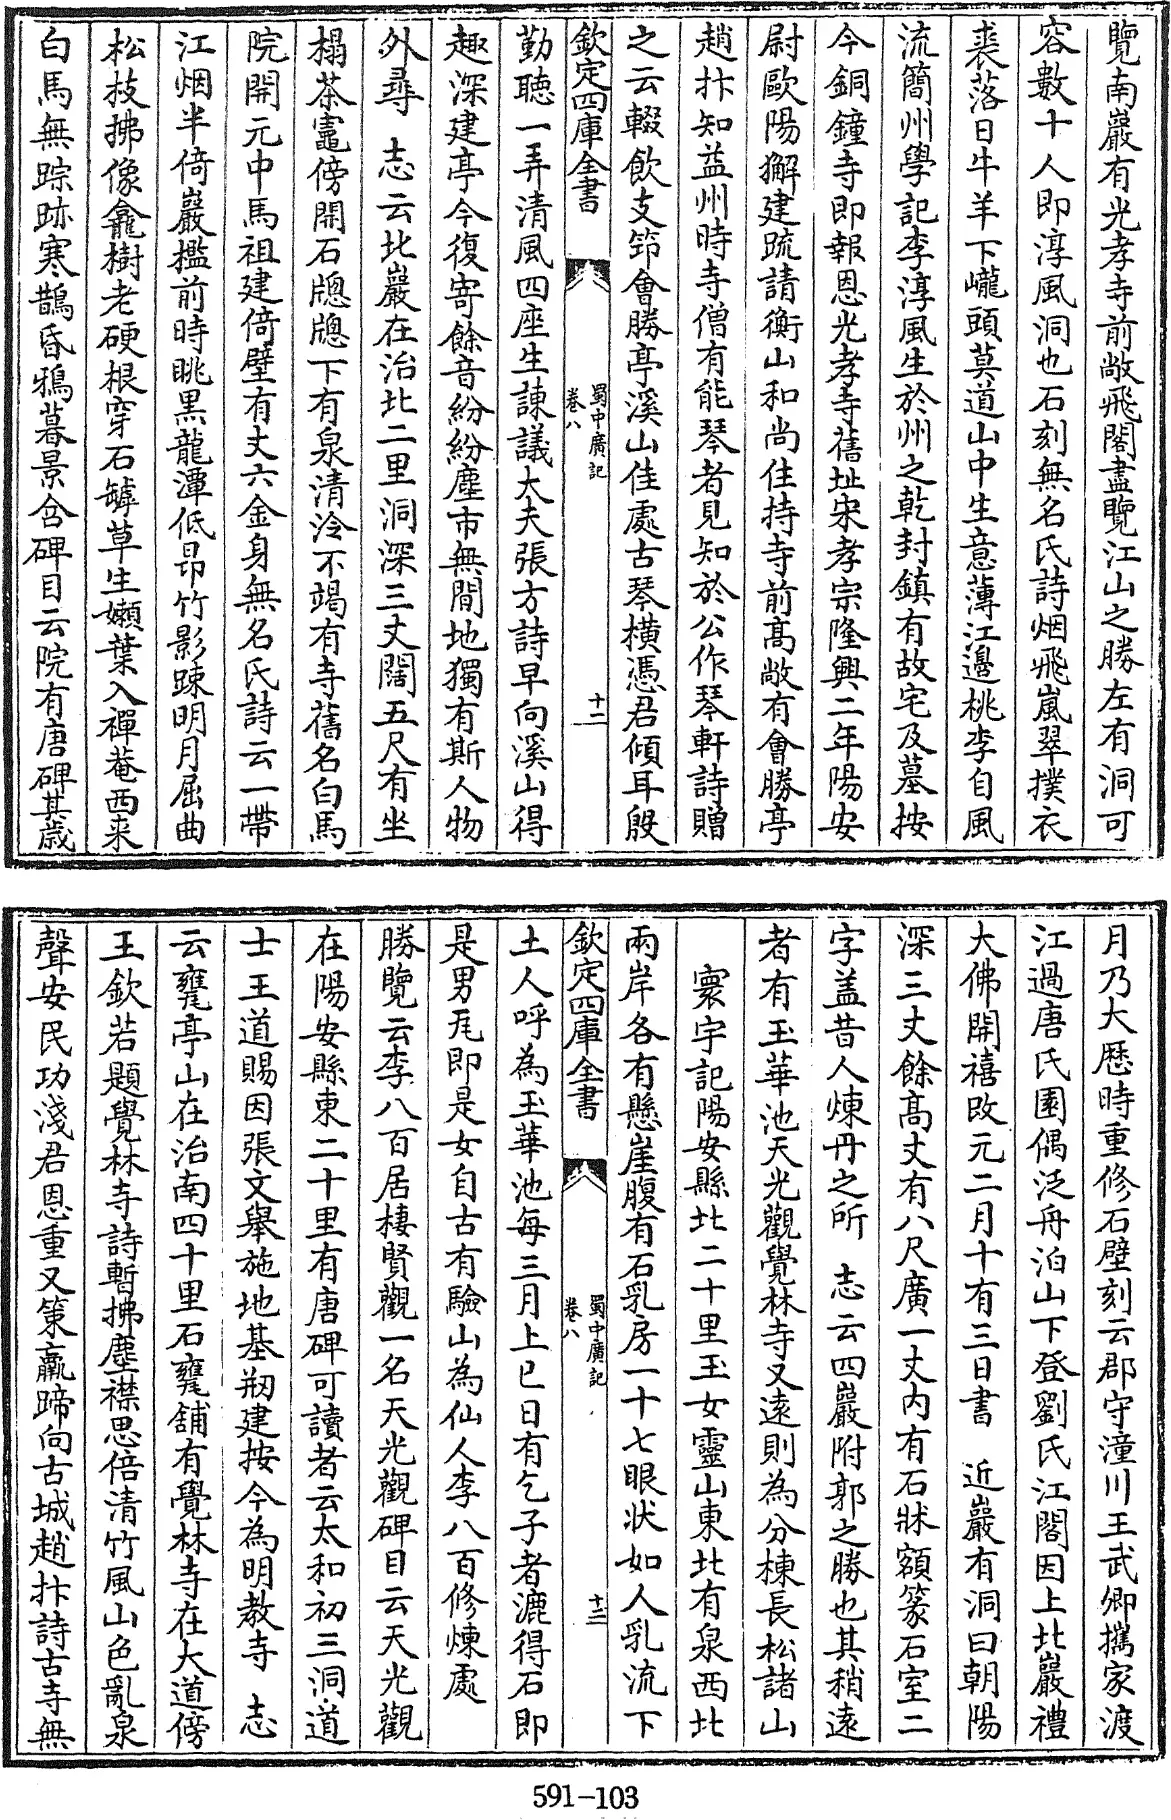 覽南巖有光孝寺前敞飛閣盡覽江山之勝左有洞可
容數十人即淳風洞也石刻無名氏詩烟飛嵐翠撲衣
裘落日牛羊下巄頭莫道山中生意薄江邊桃李自風
流簡州學記李淳風生於州之乾封鎮有故宅及墓按
今銅鐘寺即報恩光孝寺舊址宋孝宗隆興二年陽安
尉歐陽獬建䟽請衡山和尚住持寺前高敞有會勝亭
趙抃知益州時寺僧有能琴者見知於公作琴軒詩贈
之云輟飲支笻會勝亭溪山佳處古琴橫憑君傾耳殷
欽定四庫全書
蜀中廣記
卷八
十二
勤聽一弄清風四座生諫議大夫張方詩早向溪山得
趣深建亭今復寄餘音紛紛塵市無閒地獨有斯人物
外尋 志云北巖在治北二里洞深三丈闊五尺有坐
榻茶竈傍開石牕牕下有泉清泠不竭有寺舊名白馬
院開元中馬祖建倚壁有丈六金身無名氏詩云一帶
江烟半倚巖檻前時眺黑龍潭低昻竹影踈明月屈曲
松枝拂像龕樹老硬根穿石罅草生嬾葉入禪菴西来
白馬無踪跡寒鵲昏鴉暮景含碑目云院有唐碑其歲
月乃大歷時重修石壁刻云郡守潼川王武卿攜家渡
江過唐氏園偶泛舟泊山下登劉氏江閣因上北巖禮
大佛開禧改元二月十有三日書 近巖有洞曰朝陽
深三丈餘高丈有八尺廣一丈内有石牀額篆石室二
字盖昔人煉丹之所 志云四巖附郭之勝也其稍遠
者有玉華池天光觀覺林寺又遠則為分棟長松諸山
寰宇記陽安縣北二十里玉女靈山東北有泉西北
兩岸各有懸崖腹有石乳房一十七眼狀如人乳流下
欽定四庫全書
蜀中廣記
卷八
十三
土人呼為玉華池每三月上巳日有乞子者漉得石即
是男瓦即是女自古有驗山為仙人李八百修煉處
勝覽云李八百居棲賢觀一名天光觀碑目云天光觀
在陽安縣東二十里有唐碑可讀者云太和初三洞道
士王道賜因張文舉施地基剏建按今為明教寺 志
云甕亭山在治南四十里石甕舖有覺林寺在大道傍
王欽若題覺林寺詩暫拂塵襟思倍清竹風山色亂泉
聲安民功淺君恩重又策羸蹄向古城趙抃詩古寺無
591-103